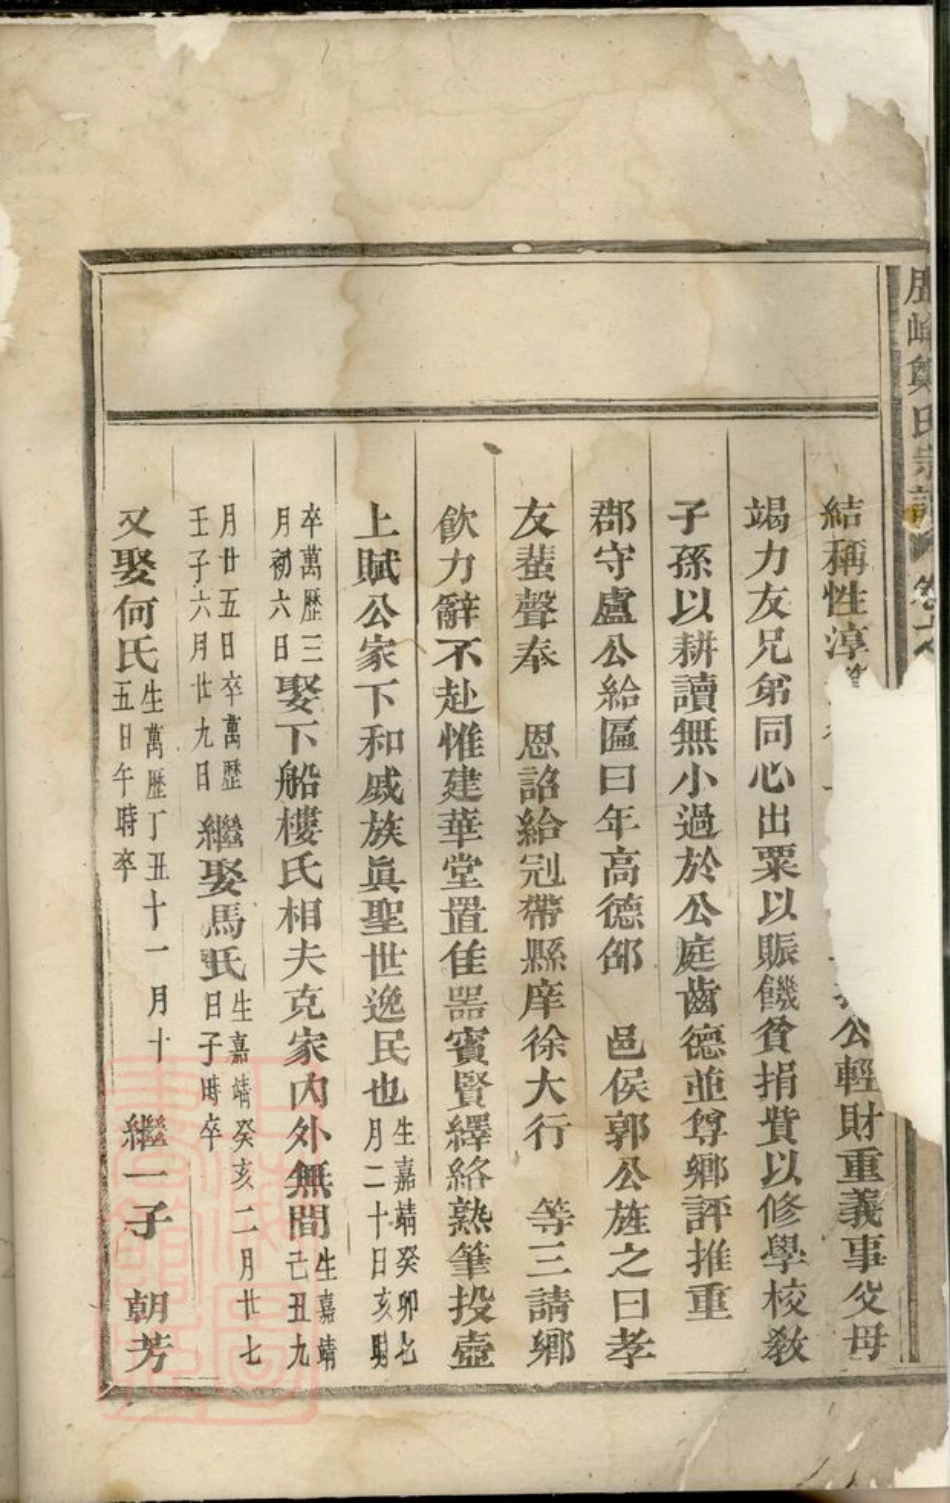 峰鄭氏宗譜 卷
結稱性淳公輕財重義事父母
竭力友兄弟同心出粟以賑饑貧捐貲以修學校教
子孫以耕讀無小過於公庭齒德並尊鄉評推重
郡守盧公給區曰年高德邵 邑侯郭公旌之曰孝
友蜚聲奉 恩詔給冠帶縣庠徐大行 等三請鄉
飲力辭不赴惟建華堂置佳器賓賢繹絡熟筆投壺
上賦公家下和戚族眞聖世逸民也生嘉靖癸卯七月二十日亥時
卒萬歷三月初六日娶下船樓氏相夫克家內外無間生嘉靖己丑九
月廿五日卒萬歷壬子六月廿九日繼娶馬氏生嘉靖癸亥二月廿七日子時卒
又娶何氏生萬歷丁丑十一月十五日午時卒 繼一子 朝芳